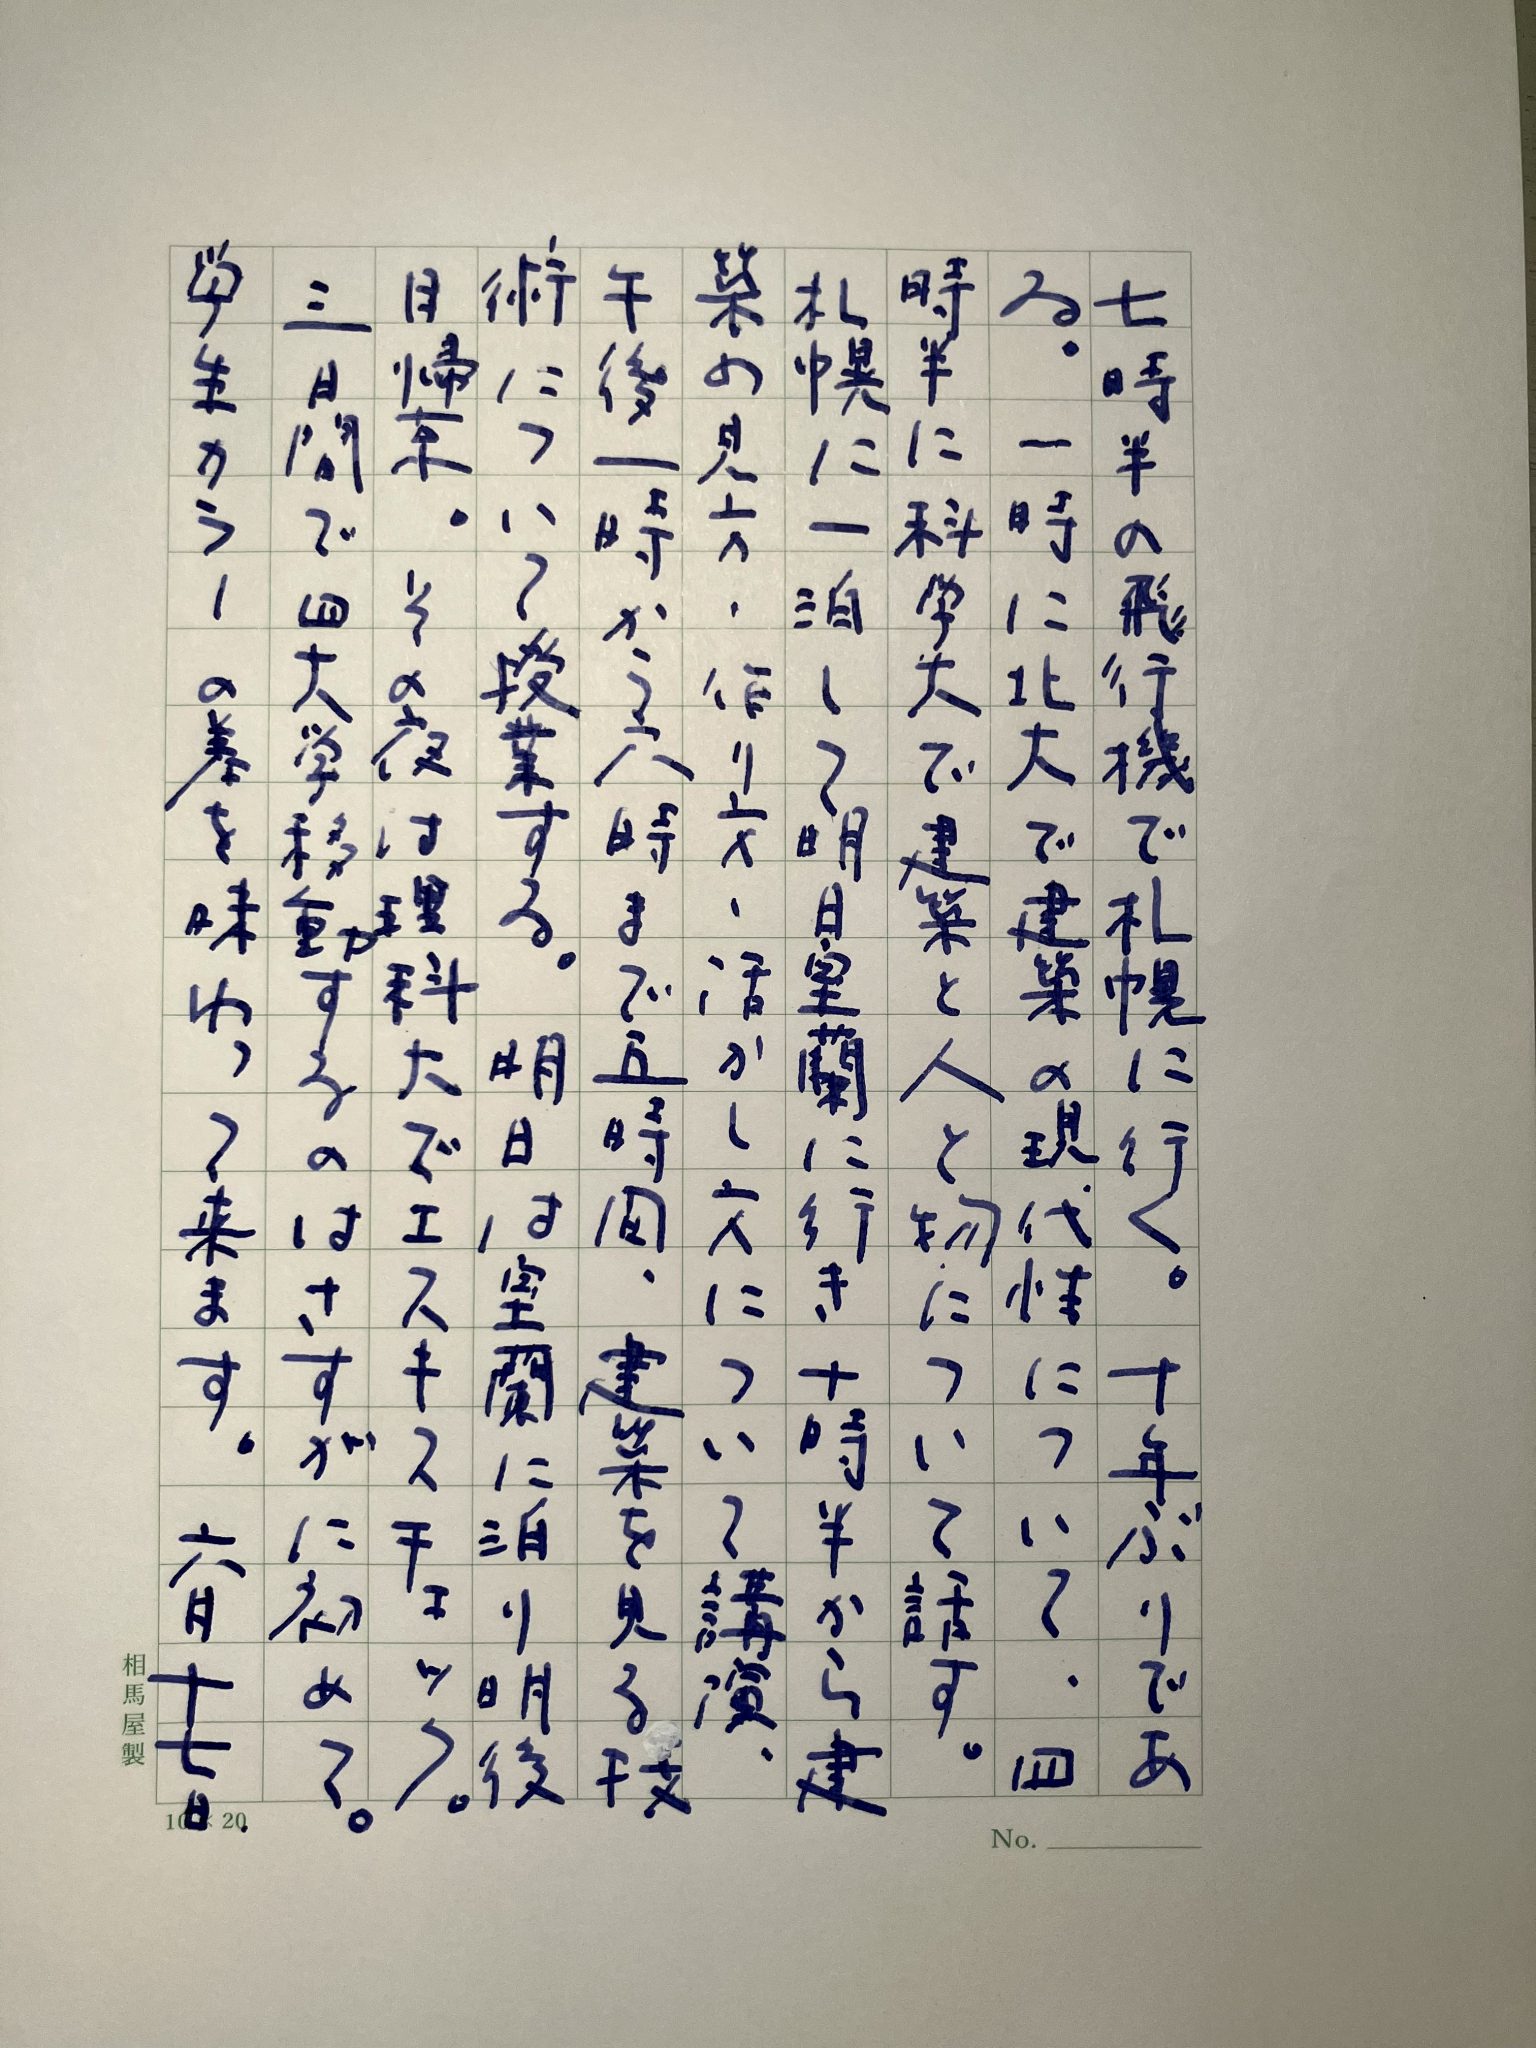 七時半の飛行機で札幌に行く。十年ぶりであ
る。一時に北大で建築の現代性について、四
時半に科学大で建築と人と物について話す。
札幌に一泊して明日室蘭に行き十時半から建
築の見方、作り方、活かし方について講演、
午後一時から六時まで五時間、建築を見る技
術について授業する。明日は室蘭に泊り明後
日帰京。その夜は理科大でエスキスチェック。
三日間で四大学移動するのはさすがに初めて。
学生カラーの差を味わって来ます。六月十七日.
相馬屋製
10×20
No.